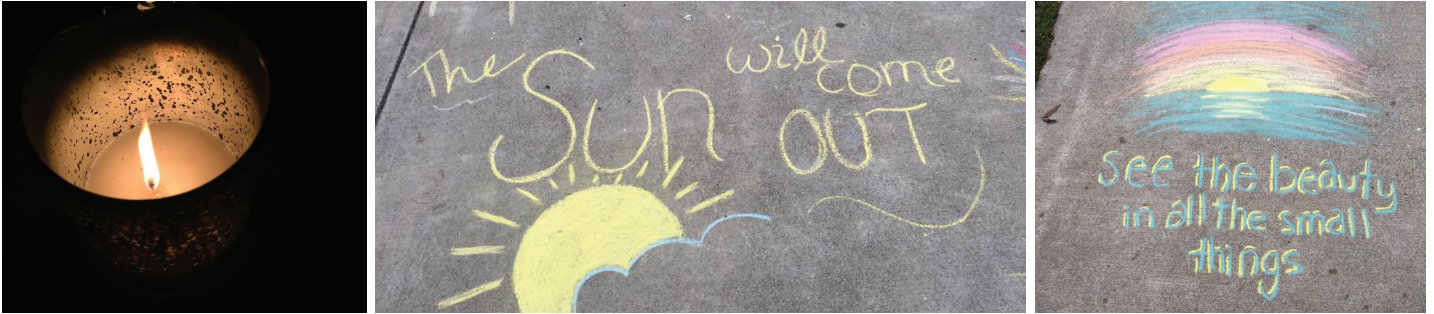 The Sun will come OUT
See the beauty
in all the small
things